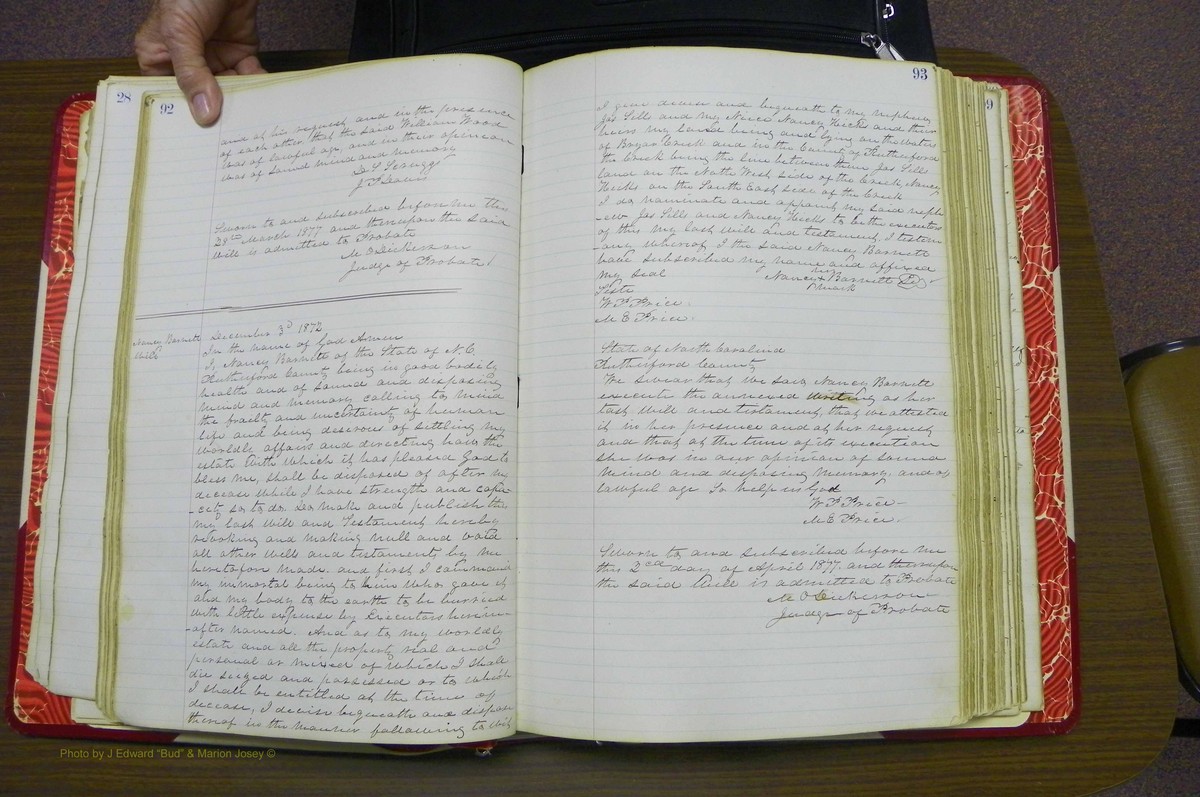 28
92
and at his request and in the presence
of each other, that the said William Wood
was of lawful age, and in their opinion
was of sound mind and memory
D. S. Scruggs
J. P. Davis
Sworn to and subscribed before me this
28th March 1877 and thereupon the said
Will is admitted to Probate
M O Dickerson
Judge of Probate
Nancy Barnett
Will
December 3d 1872
In the name of God Amen
I, Nancy Barnett of the State of N. C.
Rutherford County being in good bodily
health and of sound and disposing
mind and memory calling to mind
the frailty and uncertainty of human
life and being deserous of settling my
worldly affairs and directing how the
estate with which it has pleased God to
bless me, shall be disposed of after my
decease while I have strength and capa-
-city so to do. Do make and publish this
my last will and Testament hereby
revoking and making null and void
all other wills and testaments by me
heretofore made. and first, I command
my immortal being to him who gave it
and my body to the earth to be burried
with little expense by Executors herein-
-after named. And as to my worldly
estate and all the property real and
personal or mixed of which I shall
die seized and possessed or to which
I shall be entitled at the time of
decease, I devise bequeath and dispose
thereof in the manner following to wit
93
I give devise and bequeath to my nephew
Jas Sills and my Neice Nancy Hicks and their
heirs my land being and lying on the waters
of Bryan Creek and in the County of Rutherford
the Creek being the line between them Jas Sills
land on the North West side of the Creek, Nancy
Hicks on the South East side of the Creek
I do nominate and appoint my said neph
-ew Jas Sills and Nancy Hicks to be the executors
of this my last will and testament, I testem
-ony whereof I the said Nancy Barnett
have subscribed my name and affixed
my seal
Nancy her + Barnett
mark
Teste
W. P. Price.
M E Price.
State of North Carolina
Rutherford County
We swear that we saw Nancy Barnett
execute the annexed writing as her
last will and testament, that we attested
it in her presence and at her request
and that at the time of its execution
she was in our opinion of sound
mind and disposing memory, and of
lawful age So help us God
W P Price
M E Price
Sworn to and subscribed before me
this 2nd day of April 1877. and thereupon
the said Will is admitted to Probate
M O Dickerson
Judge of Probate
9
Photo by J Edward "Bud" & Marion Josey ©